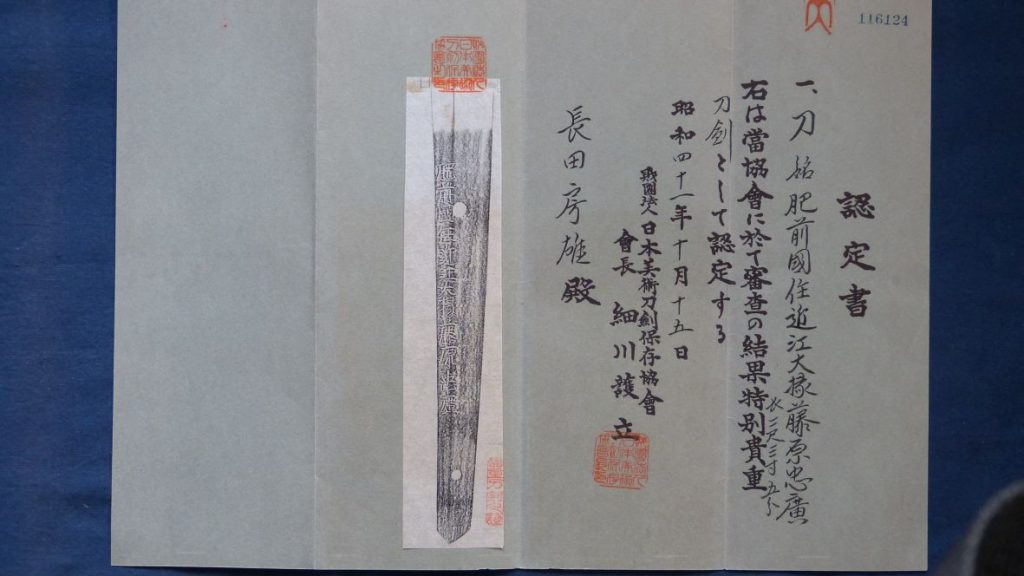 116124
認定書
一、刀 銘 肥前國住近江大掾藤原忠廣
長二尺三寸五分
右は當協會に於て審査の結果特別貴重
刀劍として認定する
昭和四十一年十月十五日
財團法人日本美術刀劍保存協會
會長 細川護立
長田房雄殿